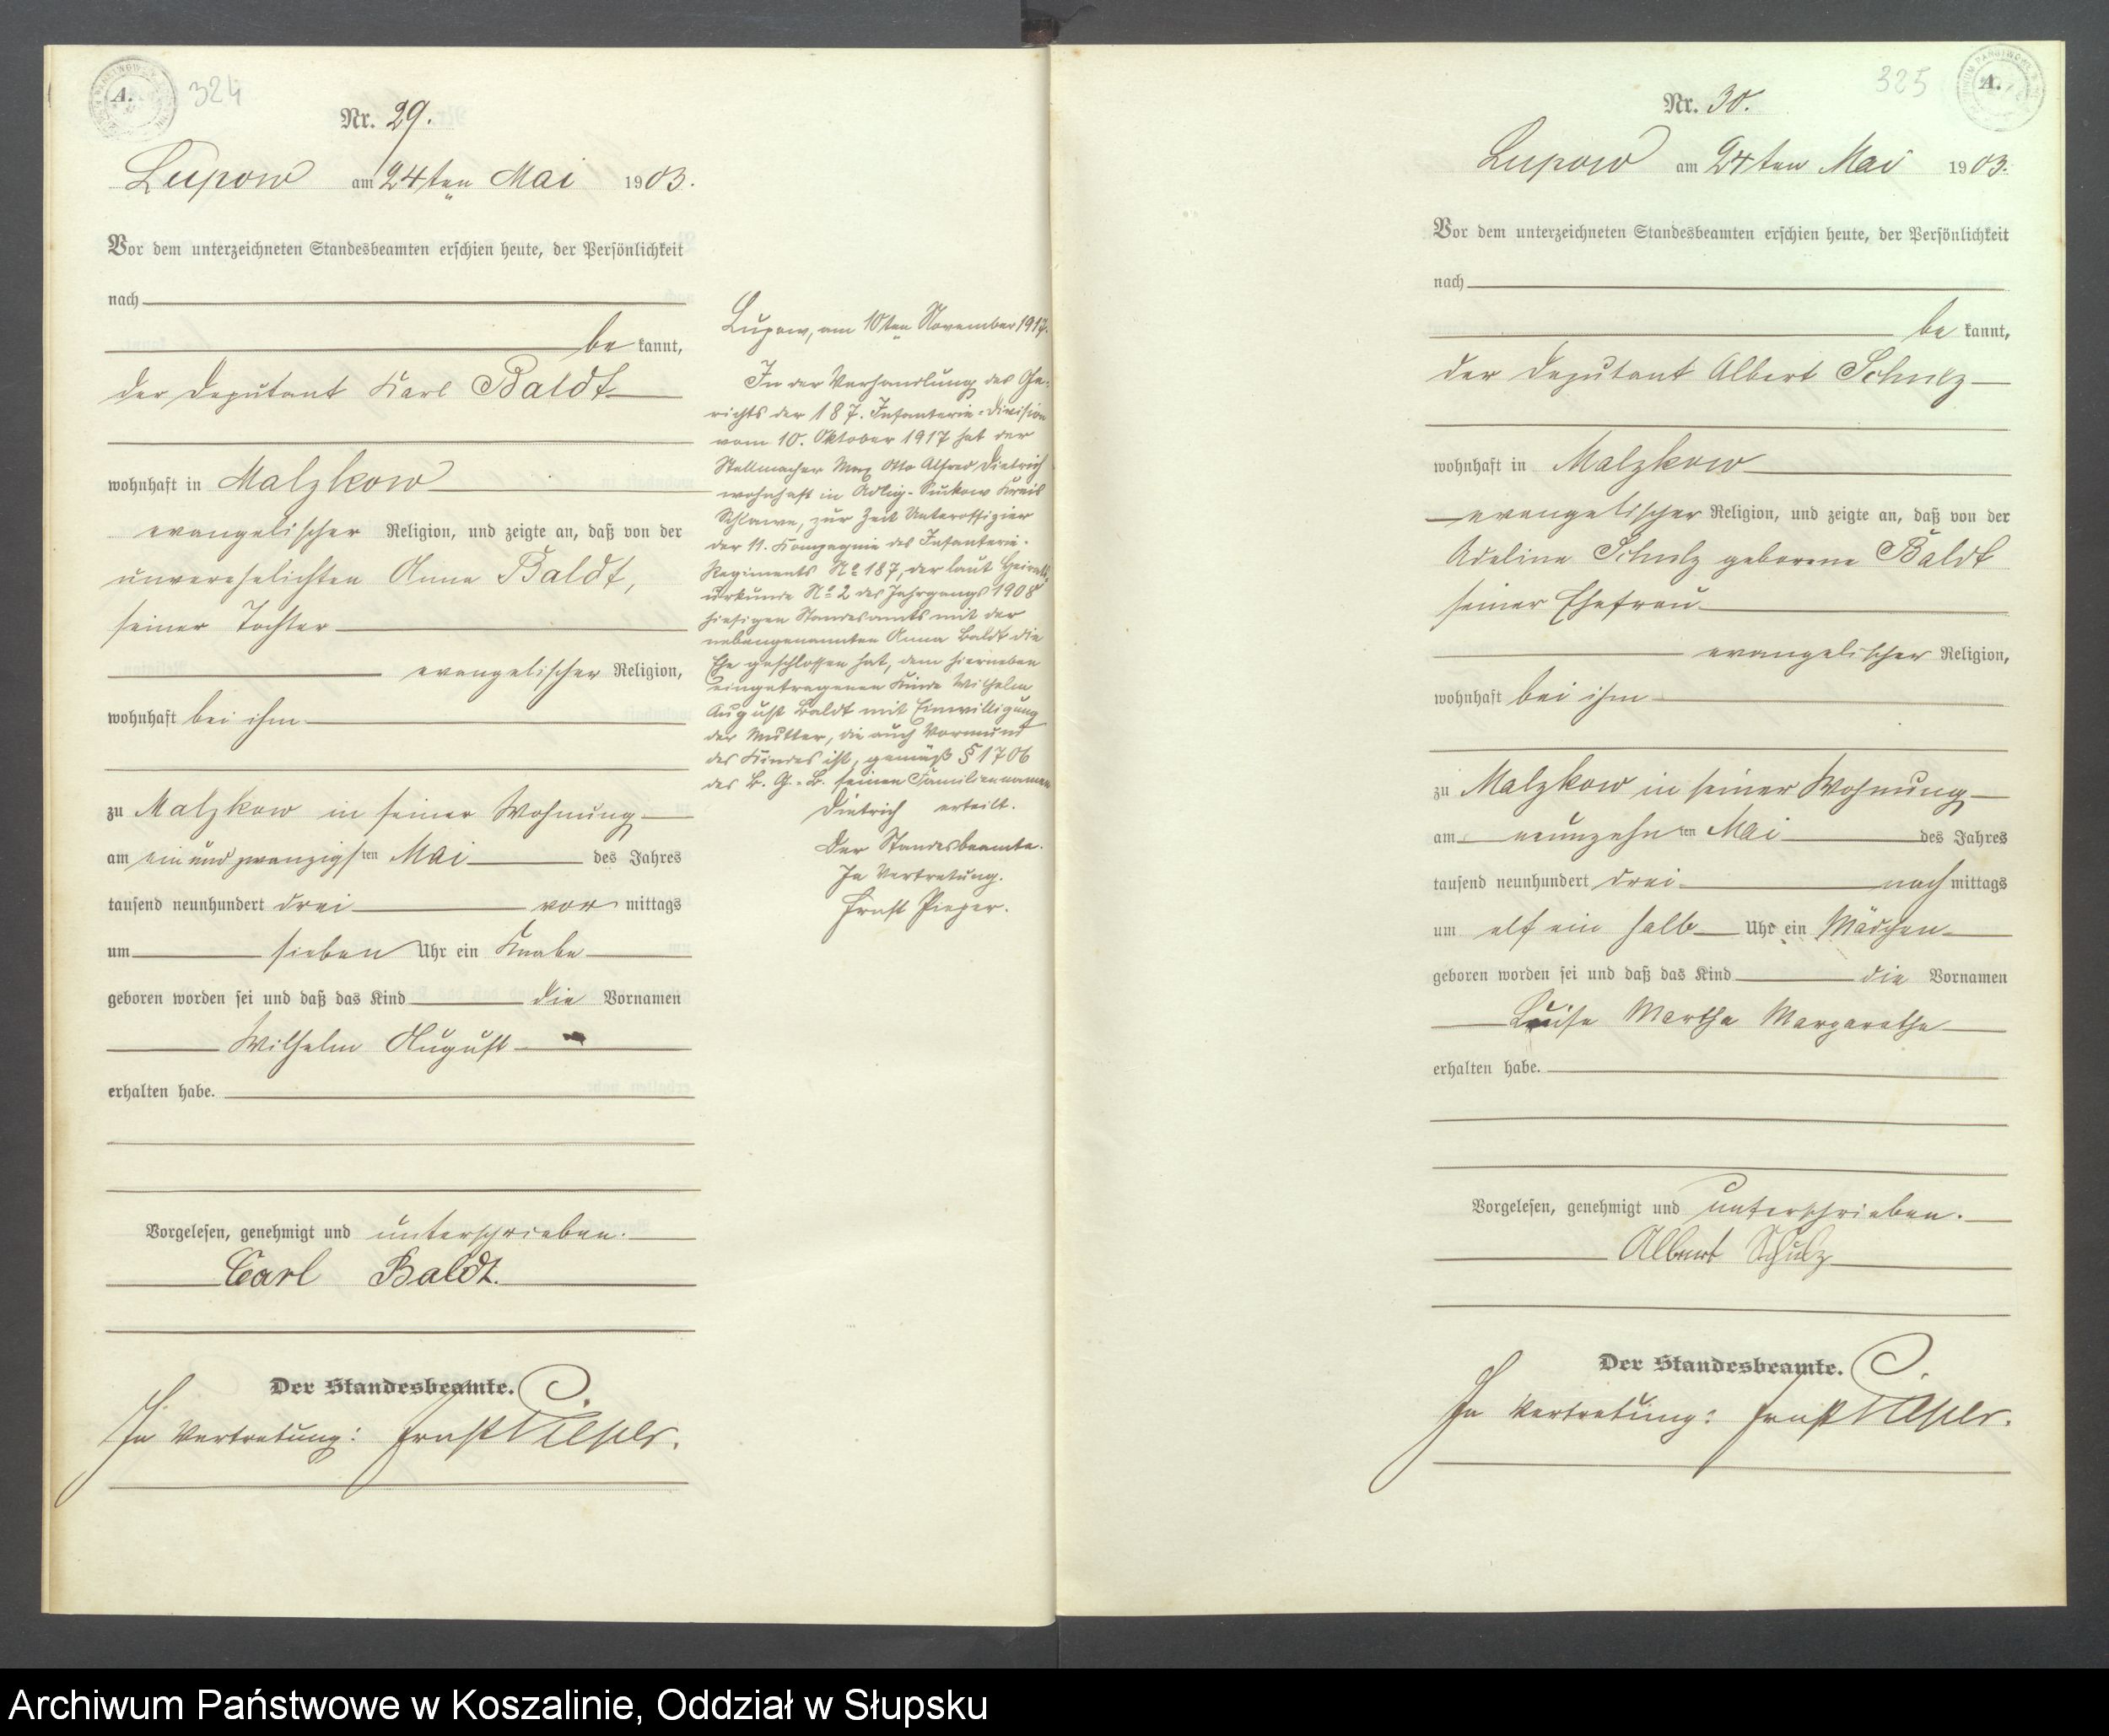 A.
324
Nr. 29.
Lupow am 24ten Mai 1903.
Vor dem unterzeichneten Standesbeamten erschien heute, der Persönlichkeit
nach
be kannt,
der Deputant Karl Baldt
wohnhaft in Malzkow
evangelischer Religion, und zeigte an, daß von der
unverehelichten Anna Baldt,
seiner Tochter
evangelischer Religion,
wohnhaft bei ihm
zu Malzkow in seiner Wohnung
am ein und zwanzigsten Mai des Jahres
tausend neunhundert drei vor mittags
um sieben Uhr ein Knabe
geboren worden sei und daß das Kind die Vornamen
Wilhelm August
erhalten habe.
Vorgelesen, genehmigt und unterschrieben.
Carl Baldt.
Der Standesbeamte.
In Vertretung: Ernst Pieper.
Lupow, am 10ten November 1917.
In der Verhandlung des Ge-
richts der 187. Infanterie-Division
vom 10. Oktober 1917 hat der
Stellmacher Max Otto Alfred Dietrich
wohnhaft in Adlig-Suckow Kreis
Schlawe, zur Zeit Unteroffizier
der 11. Kompagnie des Infanterie-
Regiments No 187, der laut Heirats-
urkunde No 2 des Jahrgangs 1908
hiesigen Standesamts mit der
nebengenannten Anna Baldt die
Ehe geschlossen hat, dem hierneben
eingetragenen Kinde Wilhelm
August Baldt mit Einwilligung
der Mutter, die auch Vormund
des Kindes ist, gemäß § 1706
des B. G.-B. seinen Familiennamen
Dietrich erteilt.
Der Standesbeamte.
In Vertretung.
Ernst Pieper.
325
A.
Nr. 30.
Lupow am 24ten Mai 1903.
Vor dem unterzeichneten Standesbeamten erschien heute, der Persönlichkeit
nach
be kannt,
der Deputant Albert Schulz
wohnhaft in Malzkow
evangelischer Religion, und zeigte an, daß von der
Adeline Schulz geborene Baldt
seiner Ehefrau
evangelischer Religion,
wohnhaft bei ihm
zu Malzkow in seiner Wohnung
am neunzehnten Mai des Jahres
tausend neunhundert drei nach mittags
um elf ein halb Uhr ein Mädchen
geboren worden sei und daß das Kind die Vornamen
Luise Martha Margarethe
erhalten habe.
Vorgelesen, genehmigt und unterschrieben.
Albert Schulz
Der Standesbeamte.
In Vertretung: Ernst Pieper.
Archiwum Państwowe w Koszalinie, Oddział w Słupsku